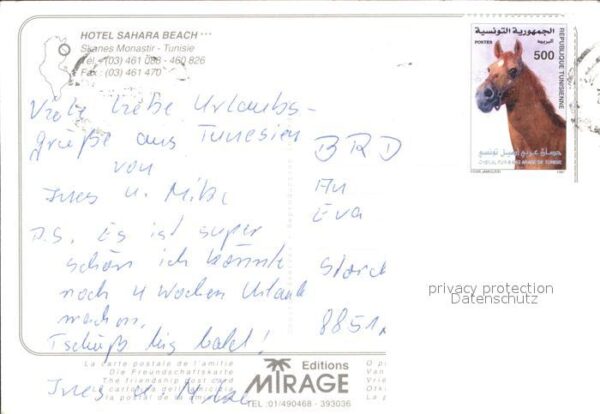 HOTEL SAHARA BEACH ***
Skanes Monastir - Tunisie
Tel : (03) 461 088 - 460 826
Fax : (03) 461 470
الجمهورية التونسية
البريد
POSTES
500
REPUBLIQUE TUNISIENNE
حصان عربي أصيل تونسي
CHEVAL PUR-SANG ARABE DE TUNISIE
1997
Viele liebe Urlaubs-
grüße aus Tunesien
von
Ines u. Mike
P.S. Es ist super
schön ich könnte
noch 4 Wochen Urlaub
machen.
Tschüß bis bald!
Ines u. Mike
BRD
An
Eva
Storch
8851
privacy protection
Datenschutz
La carte postale de l'amitie
Die Freundschaftskarte
The friendship post card
La cartolina dell'amicizia
la postal de la
Editions
MIRAGE
TEL.:01/490468 - 393036